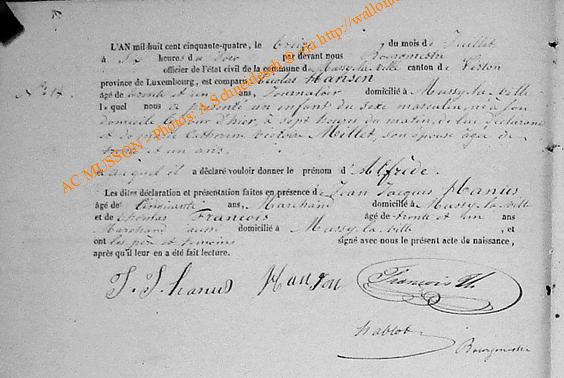 L'AN mil-huit cent cinquante-quatre, le treize du mois de Juillet
à six heures du soir par devant nous Bourgmestre
officier de l'état civil de la commune de Mussy-la-ville canton de Virton
province de Luxembourg, est comparu Nicolas Hansen
âgé de trente et un ans, Journalier domicilié à Mussy-la-ville
lequel nous a présenté un enfant du sexe masculin, né à son
domicile le jour d'hier, à sept heures du matin, de lui déclarant
et de Catherine Victoire Millet, son épouse âgée de
trente et un ans.
et auquel il a déclaré vouloir donner le prénom d'Alfrède.
Les dites déclaration et présentation faites en présence de Jean Jacques Hanus
âgé de Cinquante ans, Marchand domicilié à Mussy-la-ville
et de Thomas François âgé de trente et un ans
Marchand aussi domicilié à Mussy-la-ville, et
ont les père et témoins signé avec nous le présent acte de naissance,
après qu'il leur en a été fait lecture.
J. J. hanus Hanson François Th
Bourgmestre
AC MUSSON - Photos: A. Schneideesch © via http://wallonia